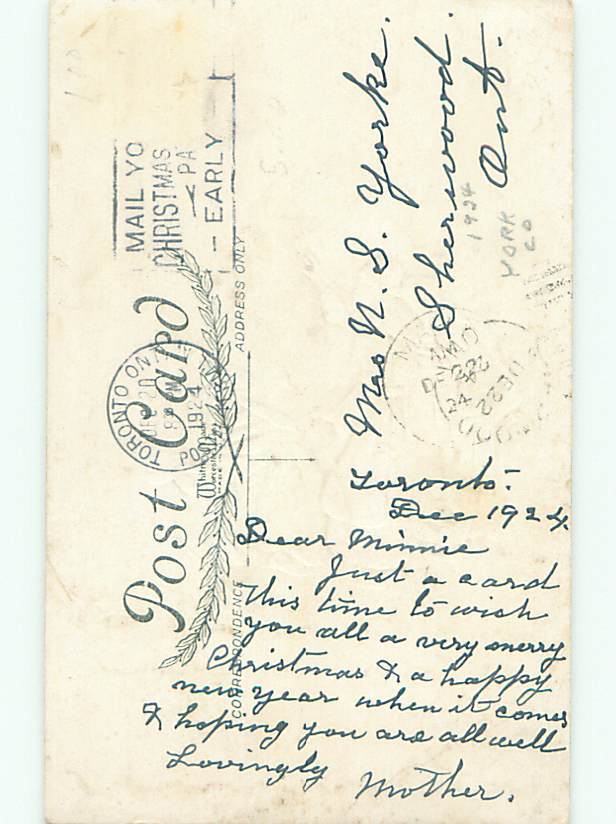 MAIL YO
CHRISTMAS
PA
EARLY
Post Card
TORONTO ONT
20
1924
ADDRESS ONLY
CORRESPONDENCE
Mrs N. S. Yorke.
Sherwood.
Ont.
1924
YORK
CO
24
DE 22
Toronto.
Dec 1924.
Dear Minnie
Just a card
this time to wish
you all a very merry
Christmas & a happy
new year when it comes
& hoping you are all well
Lovingly Mother.